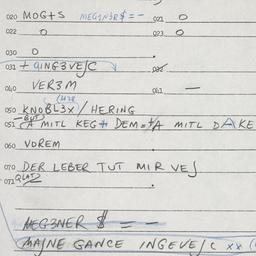 020 MOG+S MEG1N3R$=- 021 O
022 O 023 O
030 O
031 + QING3VE∫C 032
040 VER3M 041 —
050 KNOBL3X / HERING
051 CA MITL KEG+ DEM.+A MITL DAKE
060 VOREM
070 DER LEBER TUT MIR VE∫
071 QLAT2
MEG3NER $ = –
MA∫NE GANCE INGEVE∫C xx